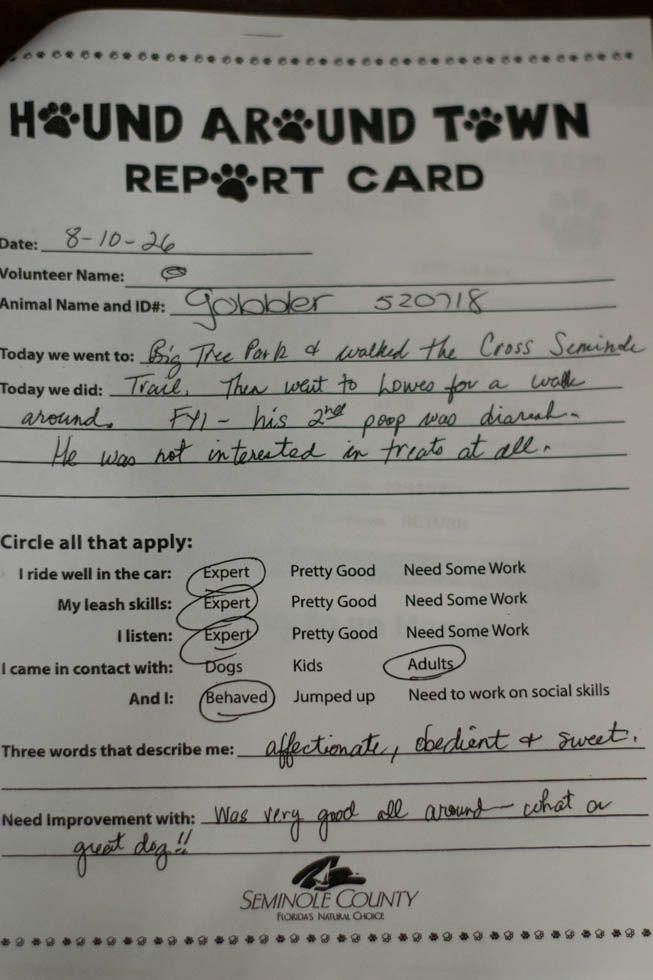 HOUND AROUND TOWN
REPORT CARD
Date: 8-10-26
Volunteer Name:
Animal Name and ID#: Gobbler 520718
Today we went to: Big Tree Park & walked the Cross Seminole
Today we did: Trail. Then went to Lowes for a walk
around. FYI - his 2nd poop was diareah.
He was not interested in treats at all.
Circle all that apply:
I ride well in the car: Expert Pretty Good Need Some Work
My leash skills: Expert Pretty Good Need Some Work
I listen: Expert Pretty Good Need Some Work
I came in contact with: Dogs Kids Adults
And I: Behaved Jumped up Need to work on social skills
Three words that describe me: affectionate, obedient & sweet.
Need Improvement with: Was very good all around - what a
great dog!!
SEMINOLE COUNTY
FLORIDA'S NATURAL CHOICE